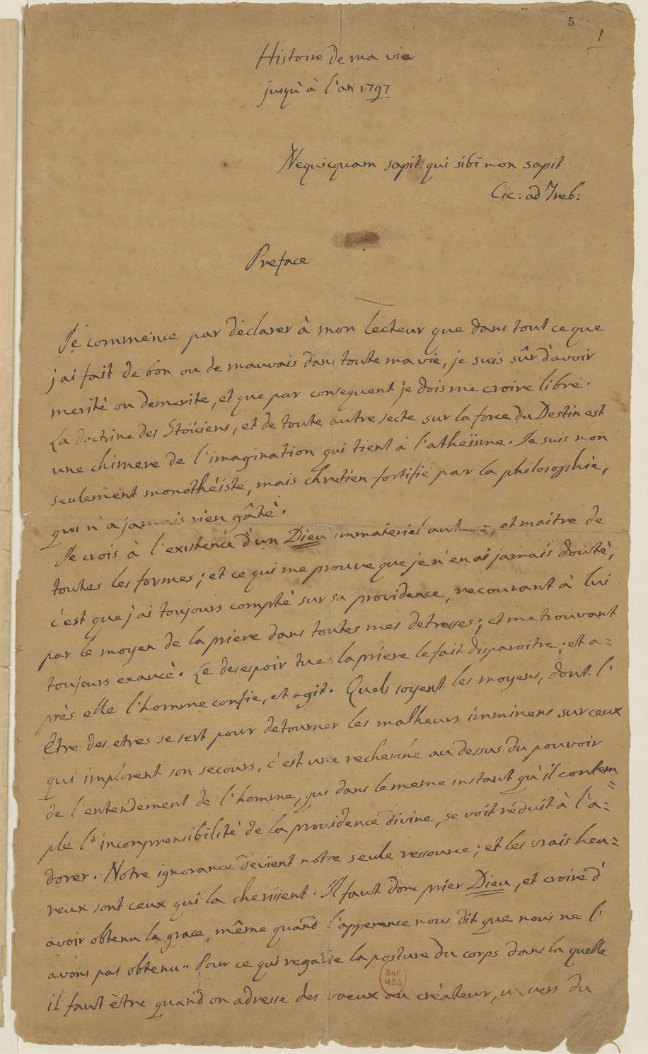 5
1
Histoire de ma vie
jusqu'à l'an 1797
Nequicquam sapit qui sibi non sapit
Cic: ad Treb:
Preface
Je commence par déclarer à mon lecteur que dans tout ce que
j'ai fait de bon ou de mauvais dans toute ma vie, je suis sûr d'avoir
merité ou demerité, et que par consequent je dois me croire libre.
La doctrine des Stoïciens, et de toute autre secte sur la force du Destin est
une chimere de l'imagination qui tient à l'atheïsme. Je suis non
seulement monothéiste, mais chretien fortifié par la philosophie,
qui n'a jamais rien gâté.
Je crois à l'existence d'un Dieu immateriel et maitre de
toutes les formes; et ce qui me prouve que je n'en ai jamais douté,
c'est que j'ai toujours compté sur sa providence, recourant à lui
par le moyen de la priere dans toutes mes detresses; et me trouvant
toujours exaucé. Le desespoir tue: la priere le fait disparoitre; et a=
près elle l'homme confie, et agit. Quels soyent les moyens, dont l'
Être des etres se sert pour detourner les malheurs imminens sur ceux
qui implorent son secours, c'est une recherche au dessus du pouvoir
de l'entendement de l'homme, qui dans le meme instant qu'il contem=
ple l'incomprensibilité de la providence divine, se voit réduit à l'a=
dorer. Notre ignorance devient notre seule ressource; et les vrais heu=
reux sont ceux qui la cherissent. Il faut donc prier Dieu, et croire d'
avoir obtenu la grace, même quand l'apparence nous dit que nous ne l'
avons pas obtenu. Pour ce qui regarde la posture du corps dans la quelle
il faut être quand on adresse des voeux au créateur, un vers du
BnF
MSS